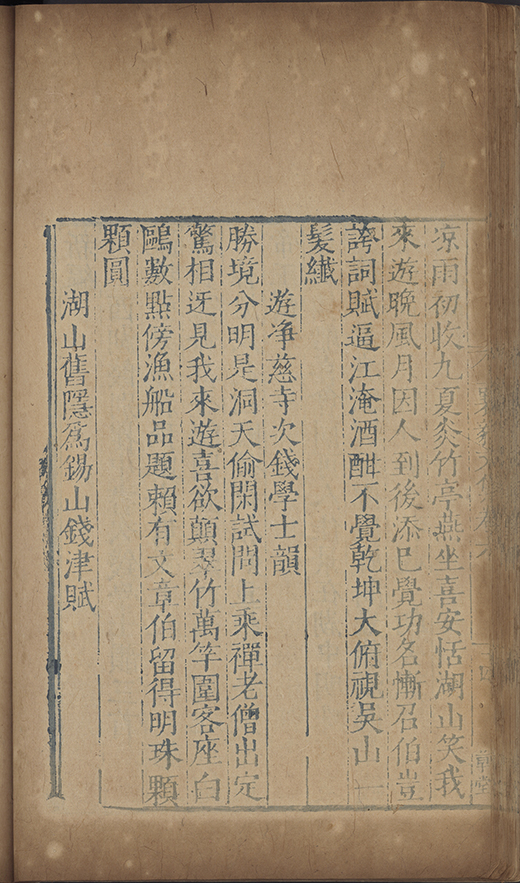 凉雨初收九夏炎竹亭燕坐喜安恬湖山笑我
來遊晚風月因人到後添已覺功名慚召伯豈
誇詞賦逼江淹酒酣不覺乾坤大俯視吳山一
髮纖
遊净慈寺次錢學士韻
勝境分明是洞天偷閑試問上乘禪老僧出定
驚相迓見我來遊喜欲顛翠竹萬竿圍客座白
鷗數點傍漁船品題賴有文章伯留得明珠顆
顆圓
湖山舊隱爲錫山錢津賦